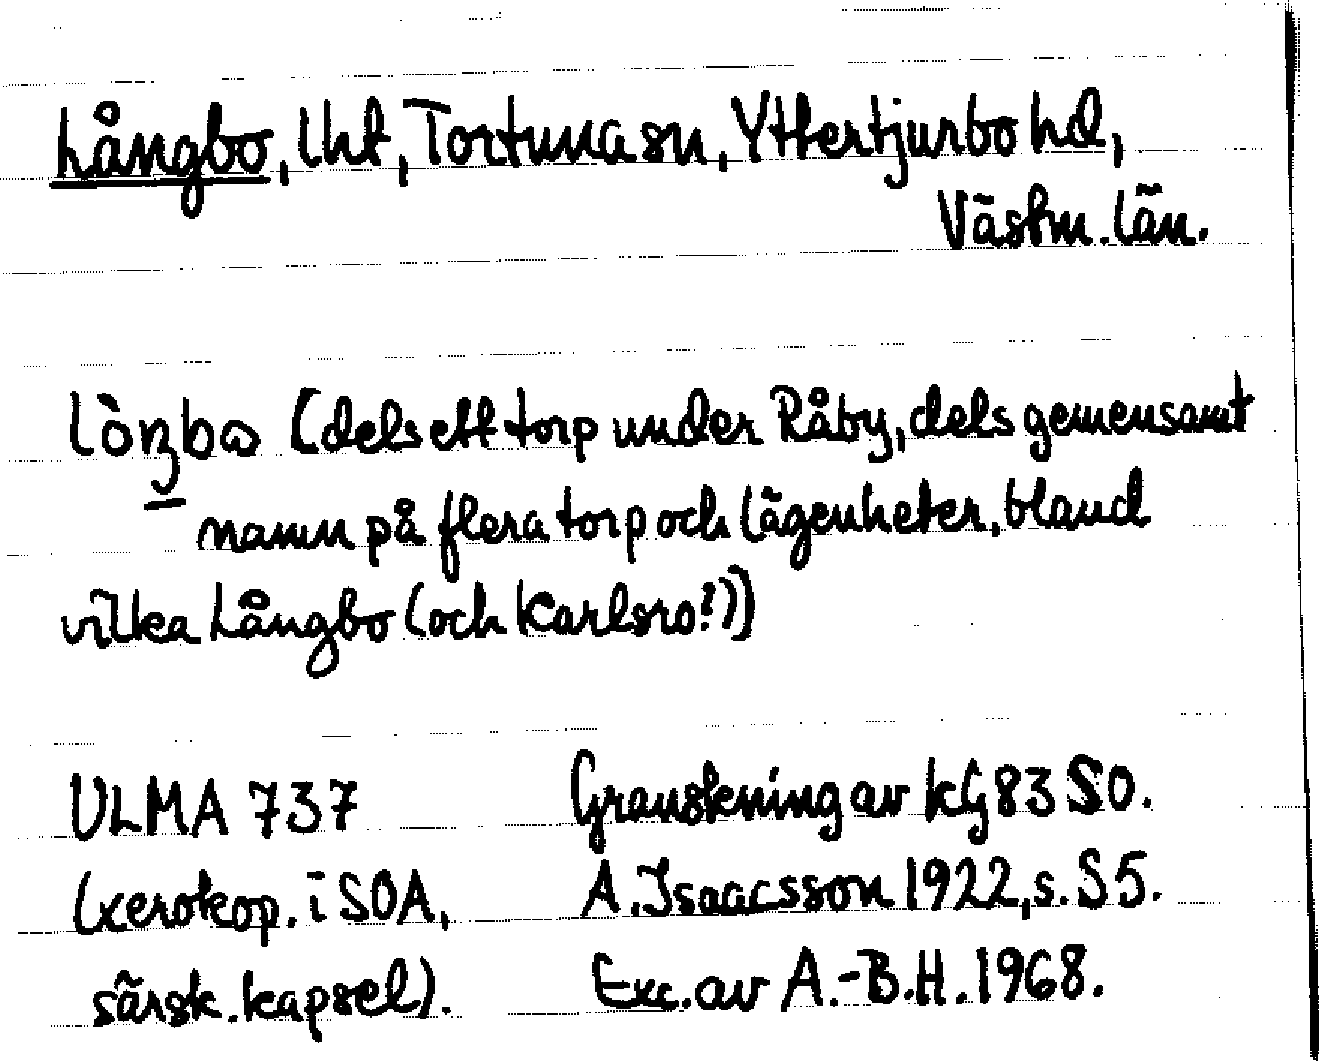 Långbo, lht, Tortuna sn, Yttertjurbo hd,
Västm. län.
lòŋbo (dels ett torp under Råby, dels gemensamt
namn på flera torp och lägenheter, bland
vilka Långbo (och Karlsro?))
ULMA 737 Granskning av KG 83 SO.
(xerokop. i SOA, A. Isaacsson 1922, s. S5.
särsk. kapsel). Exc. av A.-B.H. 1968.